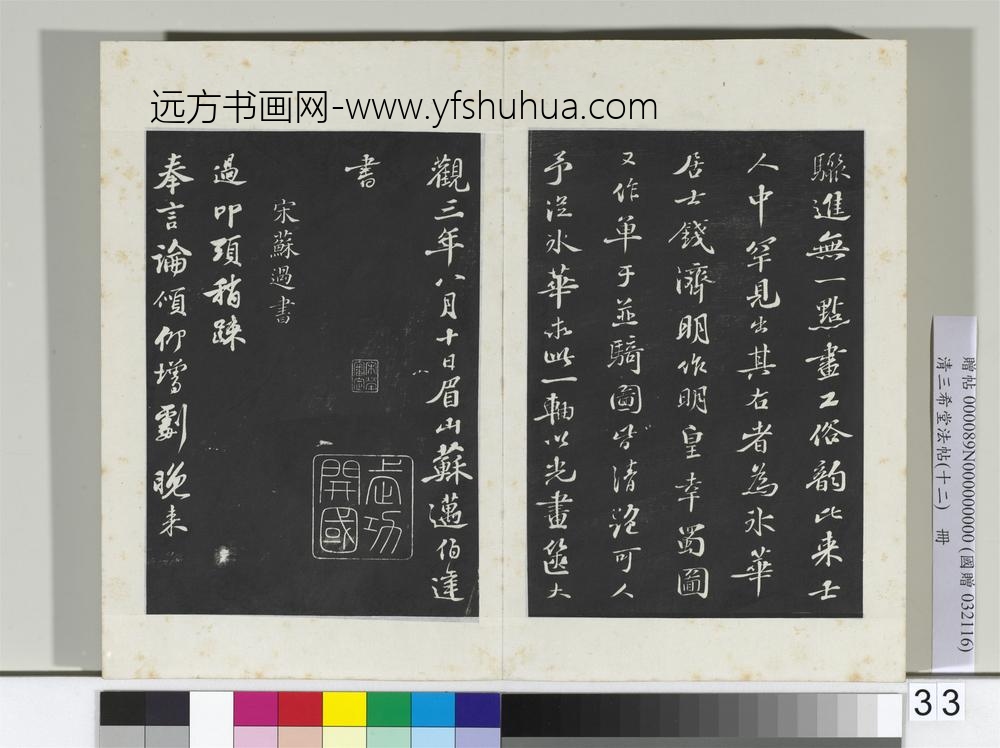 远方书画网-www.yfshuhua.com
驟進無一點畫工俗韵比来士
人中罕見出其右者為氷華
居士錢濟明作明皇幸蜀圖
又作單于並騎圖皆清絶可人
予從氷華求此一軸以光畫篋大
觀三年八月十日眉山蘇邁伯達
書
武功
開國
宋蘇過書
過叩頭稍踈
奉言論傾仰增劇晚来
贈帖 000089N000000000 (國贈 032116)
清三希堂法帖(十二) 冊
33